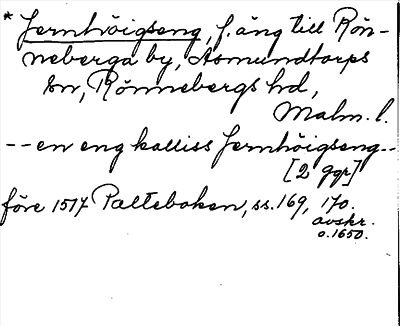 * Jernhöigseng, f. äng till Rön-
neberga by, Asmundtorps
sn, Rönnebergs hd,
Malm. l.
-- en eng kalliss Jernhöigseng --
[2 ggr]
före 1517 Palteboken, ss. 169, 170.
avskr.
o. 1650.